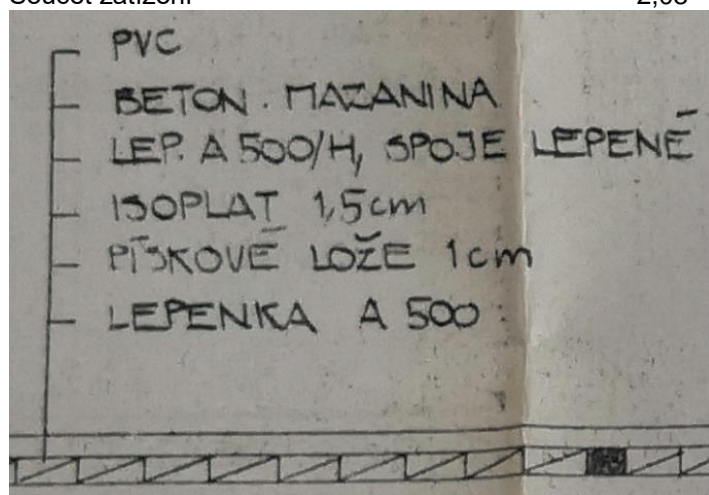 PVC
BETON. MAZANINA
LEP. A 500/H, SPOJE LEPENÉ
ISOPLAT 1,5cm
PÍSKOVÉ LOŽE 1cm
LEPENKA A 500